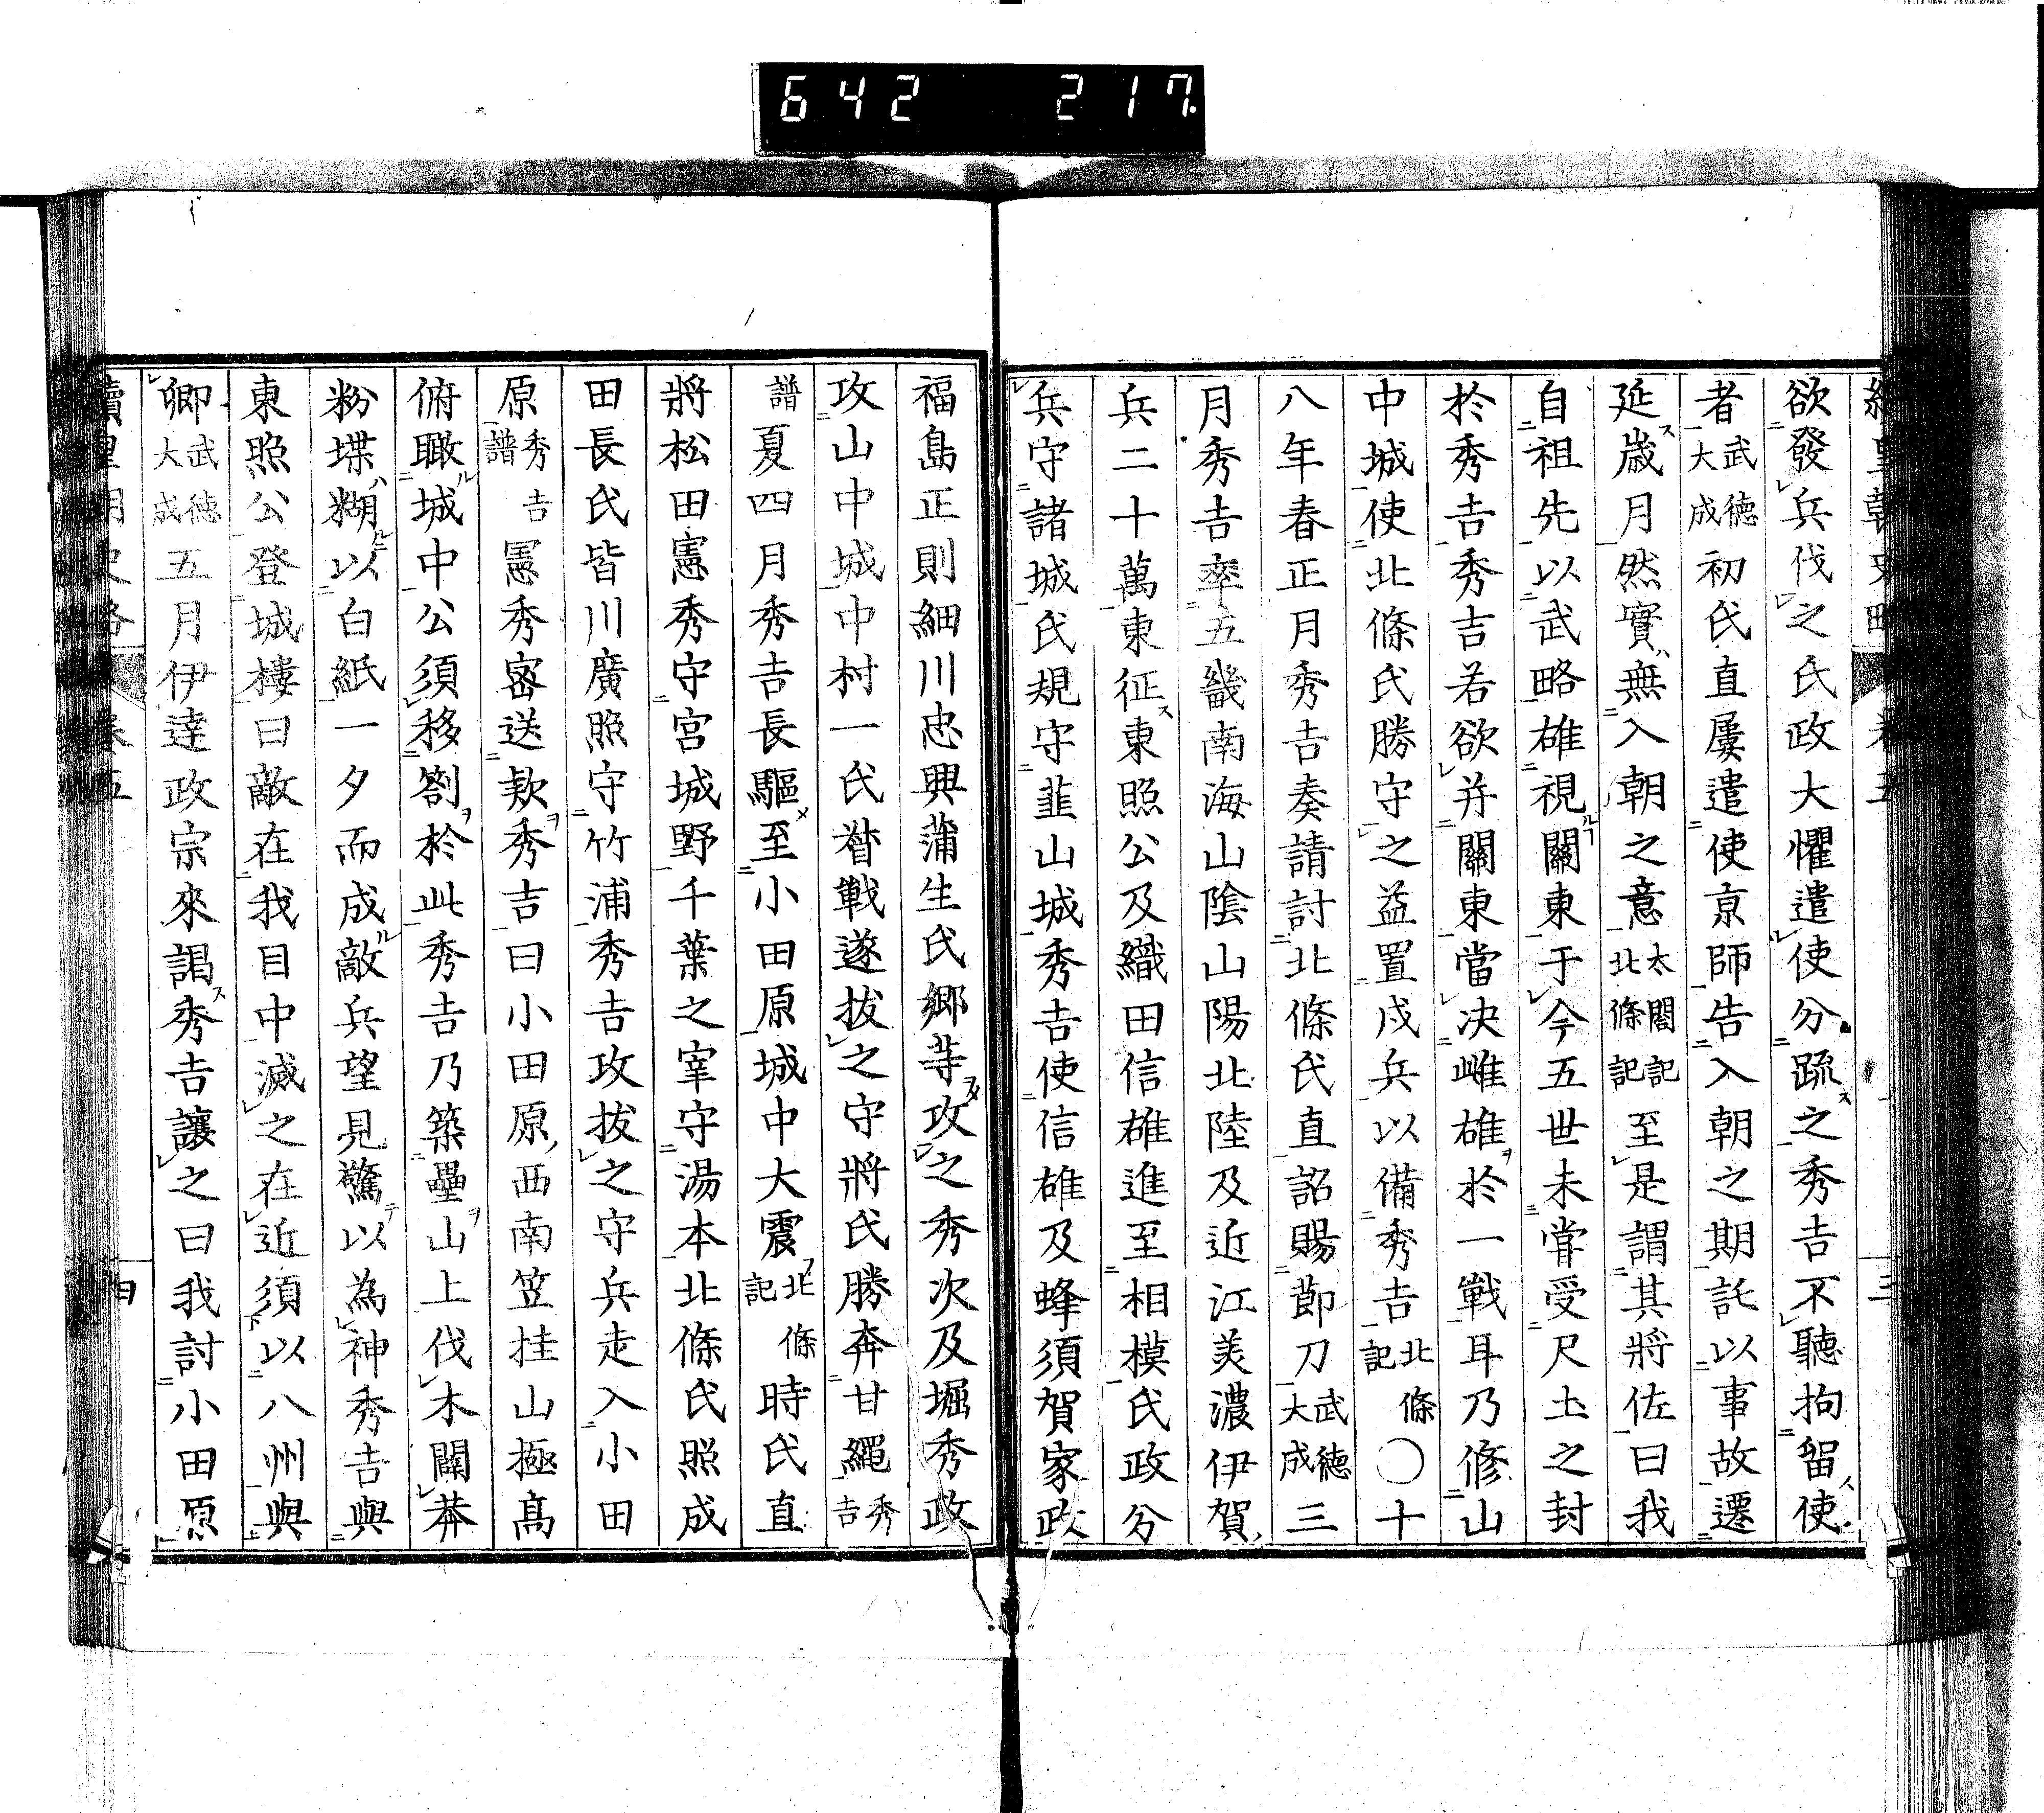 642 217
欲發兵伐之氏政大懼遣使分疏之秀吉不聽拘留使
者武德大成初氏直屢遣使京師告入朝之期託以事故遷
延歲月然實無入朝之意太閤記北條記至是謂其將佐曰我
自祖先以武略雄視關東于今五世未甞受尺土之封
於秀吉秀吉若欲并關東當决雌雄於一戰耳乃修山
中城使北條氏勝守之益置戍兵以備秀吉北條記〇十
八年春正月秀吉奏請討北條氏直詔賜節刀武德大成三
月秀吉率五畿南海山陰山陽北陸及近江美濃伊賀
兵二十萬東征東照公及織田信雄進至相模氏政分
兵守諸城氏規守韮山城秀吉使信雄及蜂須賀家政
福島正則細川忠興蒲生氏鄉等攻之秀次及堀秀政
攻山中城中村一氏督戰遂拔之守將氏勝奔甘繩秀吉
譜夏四月秀吉長驅至小田原城中大震北條記時氏直
將松田憲秀守宮城野千葉之宰守湯本北條氏照成
田長氏皆川廣照守竹浦秀吉攻拔之守兵走入小田
原秀吉譜憲秀密送款秀吉曰小田原西南笠挂山極高
俯瞰城中公須移劄於此秀吉乃築壘山上伐木闢莽
粉堞糊以白紙一夕而成敵兵望見驚以為神秀吉與
東照公登城樓曰敵在我目中滅之在近須以八州與
卿武德大成五月伊達政宗來謁秀吉讓之曰我討小田原
續皇朝史略 卷五